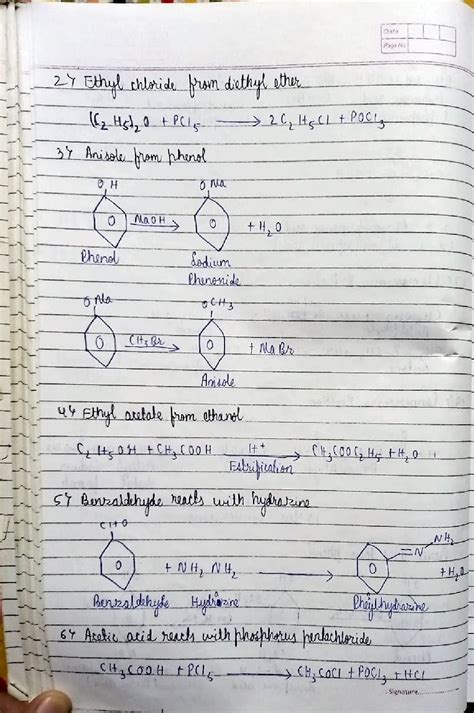 Date
Page No.
2) Ethyl chloride from diethyl ether
(C2H5)2O + PCl5 → 2C2H5Cl + POCl3
3) Anisole from phenol
OH
O Na
NaOH
+ H2O
Phenol
Sodium
Phenonide
O Na
OCH3
CH3Br
+ NaBr
Anisole
4) Ethyl acetate from ethanol
C2H5OH + CH3COOH H+ → CH3COOC2H5 + H2O
Estrification
5) Benzaldehyde reacts with hydrazine
CHO
NH2
=N
+ NH2 NH2
+ H2O
Benzaldehyde Hydrazine
Pheylhydrazine
6) Acetic acid reacts with phosphorus pentachloride
CH3COOH + PCl5 → CH3COCl + POCl3 + HCl
Signature